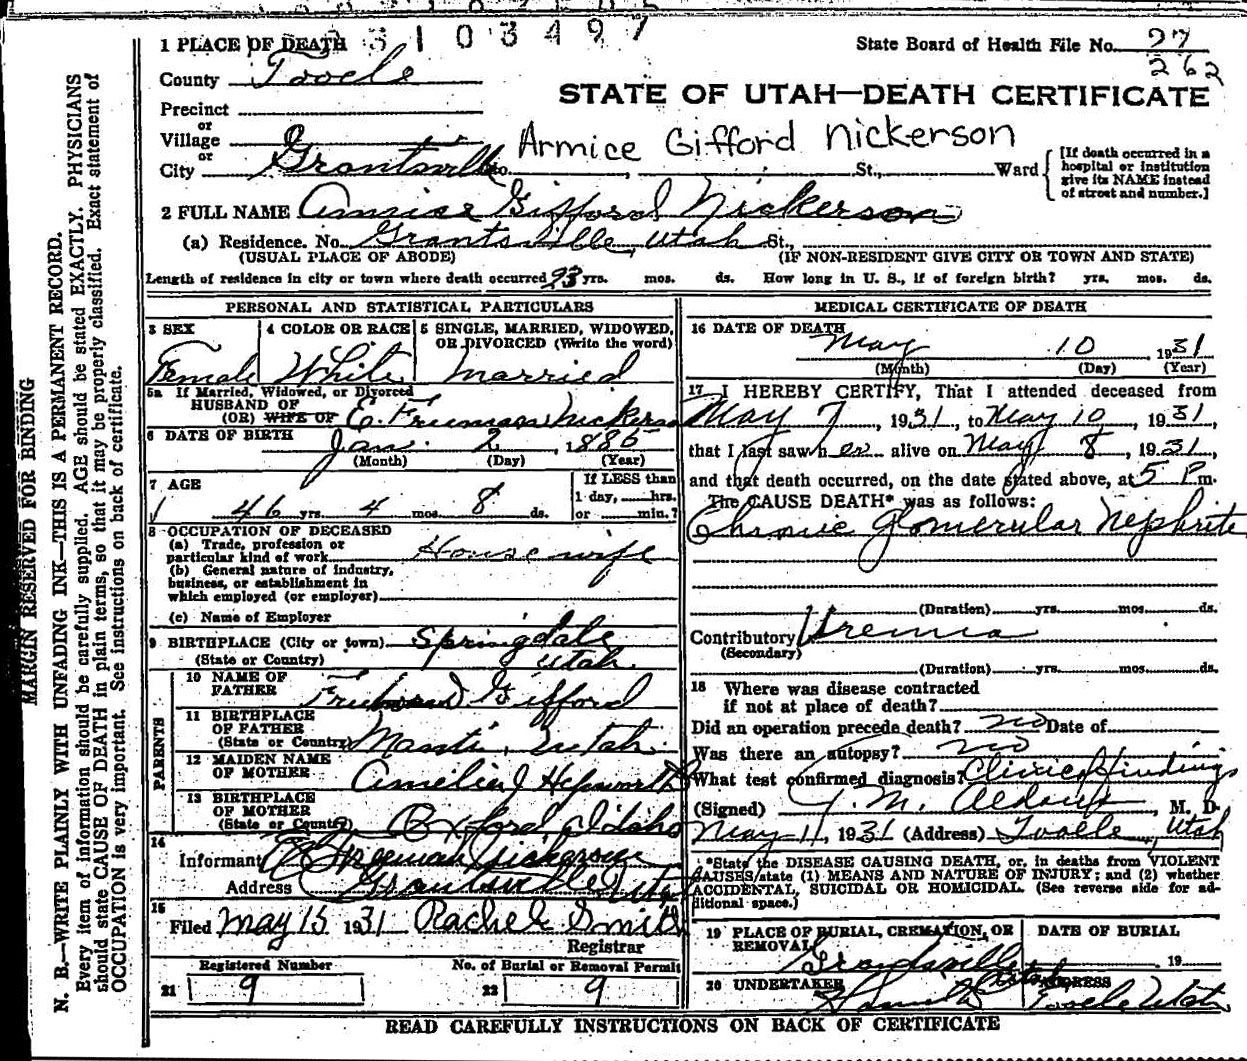 3103497
1 PLACE OF DEATH
State Board of Health File No. 27
262
County Tooele
STATE OF UTAH—DEATH CERTIFICATE
Precinct
or
Village
Armice Gifford Nickerson
or
City Grantsville No. , St., Ward
[If death occurred in a hospital or institution give its NAME instead of street and number.]
2 FULL NAME Gifford Nickerson
(a) Residence. No. Grantsville, Utah St.,
(USUAL PLACE OF ABODE) (IF NON-RESIDENT GIVE CITY OR TOWN AND STATE)
Length of residence in city or town where death occurred 23 yrs. mos. ds. How long in U. S., if of foreign birth? yrs. mos. ds.
PERSONAL AND STATISTICAL PARTICULARS
3 SEX
Female
4 COLOR OR RACE
White
5 SINGLE, MARRIED, WIDOWED,
OR DIVORCED (Write the word)
Married
5a If Married, Widowed, or Divorced
HUSBAND OF
(OR) WIFE OF E. Freeman Nickerson
6 DATE OF BIRTH Jan. 2, 1885
(Month) (Day) (Year)
7 AGE
46 yrs. 4 mos. 8 ds.
If LESS than
1 day, hrs.
or min.?
8 OCCUPATION OF DECEASED
(a) Trade, profession or
particular kind of work Housewife
(b) General nature of industry,
business, or establishment in
which employed (or employer)
(c) Name of Employer
9 BIRTHPLACE (City or town) Springdale
(State or Country) Utah
PARENTS
10 NAME OF
FATHER Gifford
11 BIRTHPLACE
OF FATHER
(State or Country) Manti, Utah
12 MAIDEN NAME
OF MOTHER Amelia J Hepworth
13 BIRTHPLACE
OF MOTHER
(State or Country) Oxford, Idaho
14
Informant E Freeman Nickerson
Address Grantsville Utah
15
Filed May 15 1931 Rachel Smith
Registrar
Registered Number
21 9
No. of Burial or Removal Permit
22 9
MEDICAL CERTIFICATE OF DEATH
16 DATE OF DEATH
May 10, 1931
(Month) (Day) (Year)
17 I HEREBY CERTIFY, That I attended deceased from
May 7, 1931, to May 10, 1931,
that I last saw her alive on May 8, 1931,
and that death occurred, on the date stated above, at 5 P.m.
The CAUSE DEATH* was as follows:
Chronic Glomerular Nephrite
(Duration) yrs. mos. ds.
Contributory Uremia
(Secondary)
(Duration) yrs. mos. ds.
18 Where was disease contracted
if not at place of death?
Did an operation precede death? no Date of
Was there an autopsy? no
What test confirmed diagnosis? Clinical findings
(Signed) J. M. , M. D.
May 11, 1931 (Address) Tooele, Utah
*State the DISEASE CAUSING DEATH, or, in deaths from VIOLENT
CAUSES/state (1) MEANS AND NATURE OF INJURY; and (2) whether
ACCIDENTAL, SUICIDAL OR HOMICIDAL. (See reverse side for ad-
ditional space.)
19 PLACE OF BURIAL, CREMATION, OR
REMOVAL
Grantsville
DATE OF BURIAL
19
20 UNDERTAKER
ADDRESS
Tooele Utah
READ CAREFULLY INSTRUCTIONS ON BACK OF CERTIFICATE
MARGIN RESERVED FOR BINDING
N. B.—WRITE PLAINLY WITH UNFADING INK—THIS IS A PERMANENT RECORD.
Every item of information should be carefully supplied. AGE should be stated EXACTLY. PHYSICIANS
should state CAUSE OF DEATH in plain terms, so that it may be properly classified. Exact statement of
OCCUPATION is very important. See instructions on back of certificate.